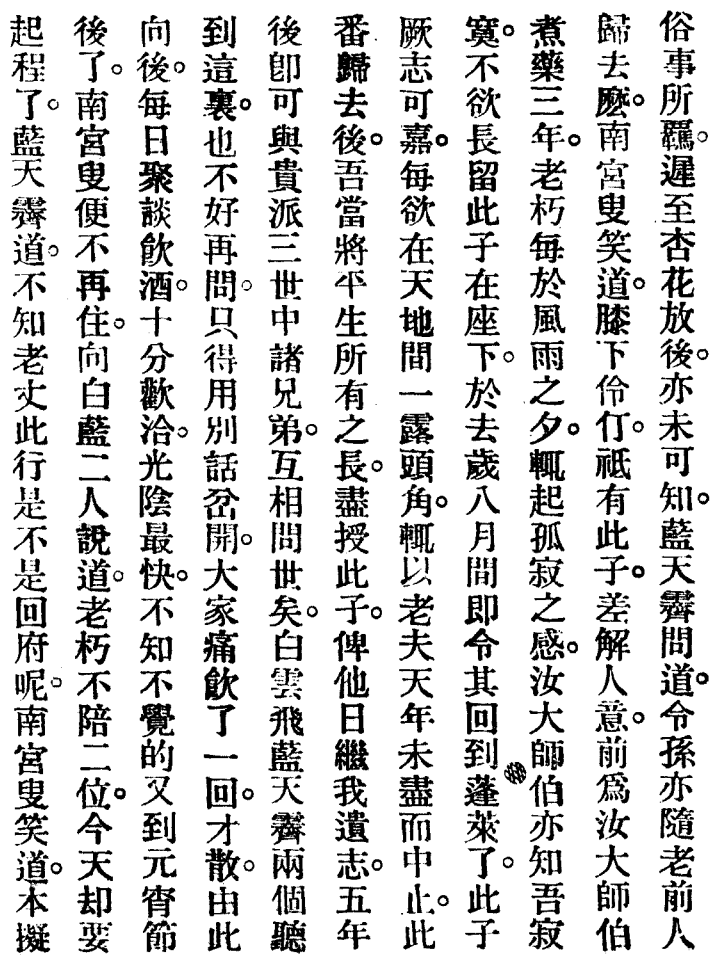 俗事所羈。遲至杏花放後。亦未可知。藍天霽問道。令孫亦隨老前人
歸去麽。南宮叟笑道。膝下伶仃。祇有此子。差解人意。前爲汝大師伯
煮藥三年。老朽每於風雨之夕。輒起孤寂之感。汝大師伯亦知吾寂
寞。不欲長留此子在座下。於去歲八月間即令其回到蓬萊了。此子
厥志可嘉。每欲在天地間一露頭角。輒以老夫天年未盡而中止。此
番歸去後。吾當將平生所有之長。盡授此子。俾他日繼我遺志。五年
後卽可與貴派三世中諸兄弟。互相問世矣。白雲飛藍天霽兩個聽
到這裏。也不好再問。只得用別話岔開。大家痛飲了一回。才散。由此
向後。每日聚談飮酒。十分歡洽。光陰最快。不知不覺的又到元宵節
後了。南宮叟便不再住。向白藍二人說道。老朽不陪二位。今天却要
起程了。藍天霽道。不知老丈此行是不是回府呢。南宮叟笑道。本擬